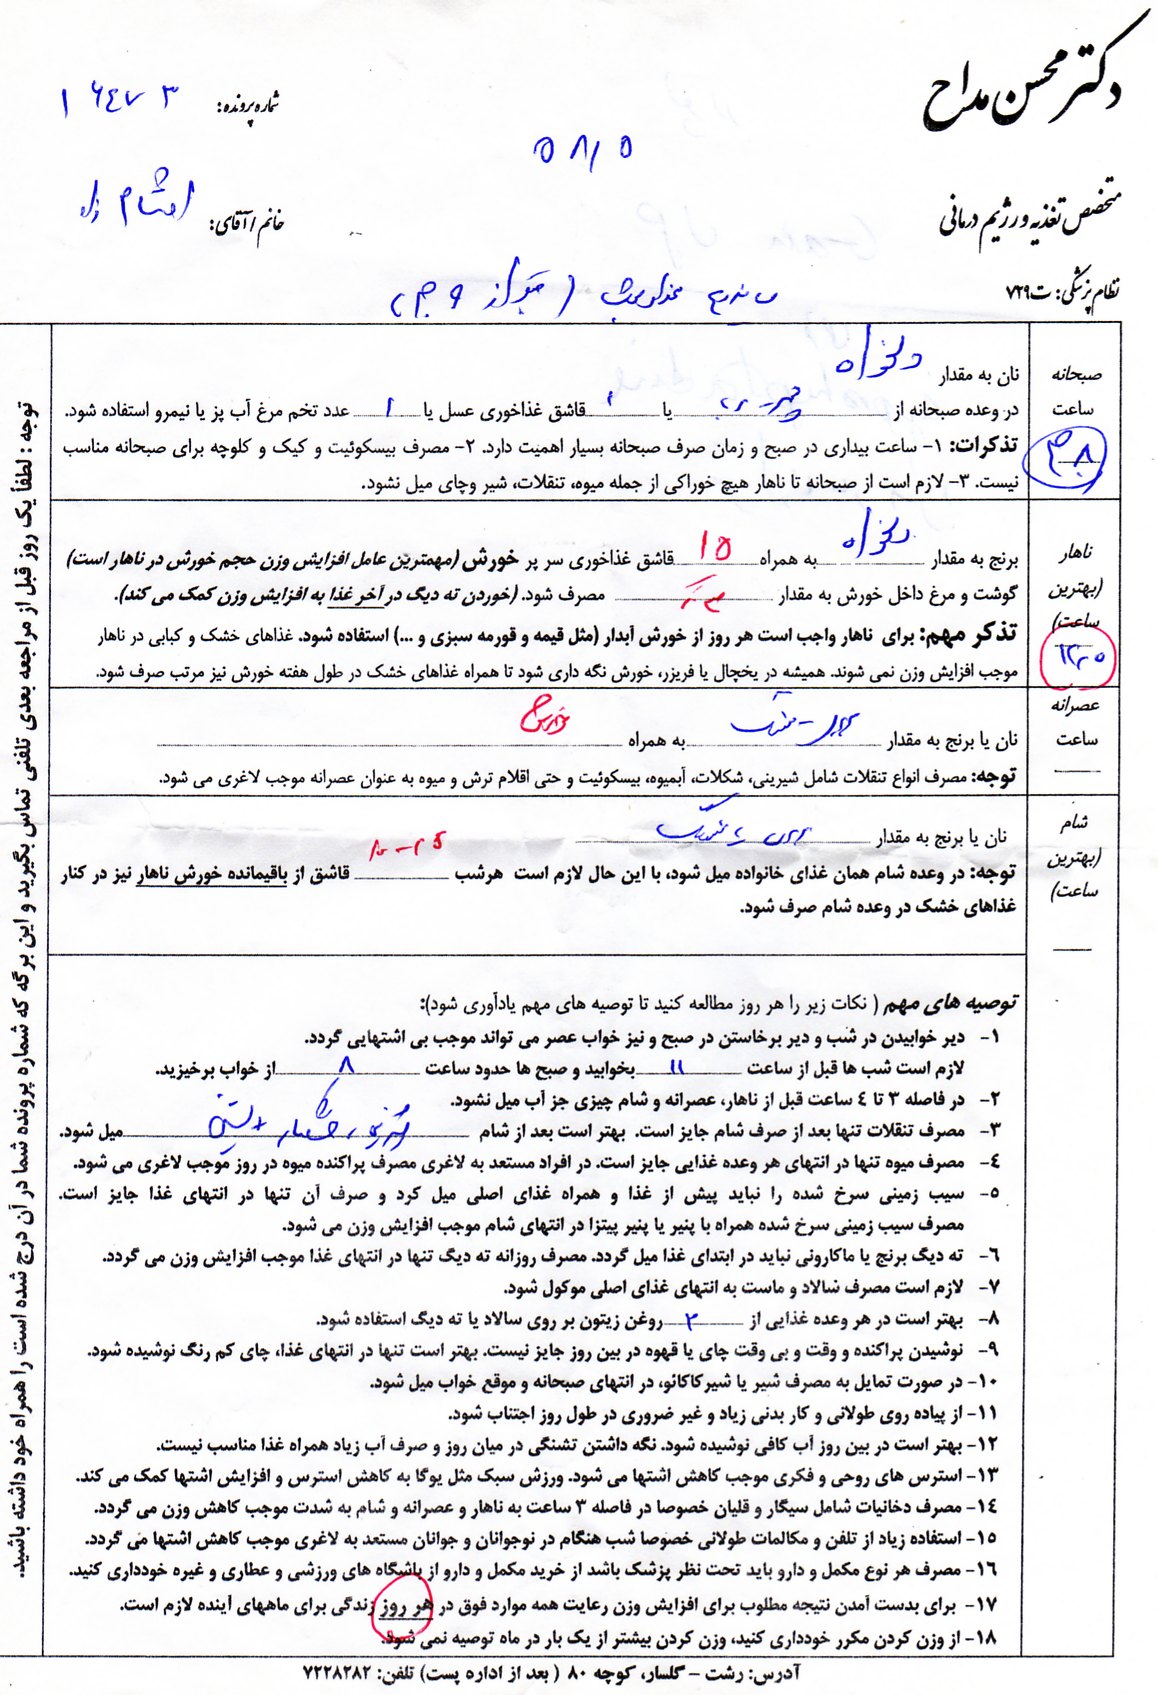 دکتر محسن مداح
شماره پرونده: ۱۶۴۷۳
۵۸/۵
متخصص تغذیه و رژیم درمانی
خانم / آقای:
نظام پزشکی: ت ۷۲۹
صبحانه
ساعت
۸
نان به مقدار دلخواه
در وعده صبحانه از پنیر یا ۲ قاشق غذاخوری عسل یا ۱ عدد تخم مرغ آب پز یا نیمرو استفاده شود.
تذکرات: ۱- ساعت بیداری در صبح و زمان صرف صبحانه بسیار اهمیت دارد. ۲- مصرف بیسکوئیت و کیک و کلوچه برای صبحانه مناسب
نیست. ۳- لازم است از صبحانه تا ناهار هیچ خوراکی از جمله میوه، تنقلات، شیر وچای میل نشود.
ناهار
(بهترین
ساعت)
برنج به مقدار دلخواه به همراه ۱۵ قاشق غذاخوری سر پر خورش (مهمترین عامل افزایش وزن حجم خورش در ناهار است)
گوشت و مرغ داخل خورش به مقدار مصرف شود. (خوردن ته دیگ در آخر غذا به افزایش وزن کمک می کند).
تذکر مهم: برای ناهار واجب است هر روز از خورش آبدار (مثل قیمه و قورمه سبزی و ...) استفاده شود. غذاهای خشک و کبابی در ناهار
موجب افزایش وزن نمی شوند. همیشه در یخچال یا فریزر، خورش نگه داری شود تا همراه غذاهای خشک در طول هفته خورش نیز مرتب صرف شود.
عصرانه
ساعت
نان یا برنج به مقدار به همراه
توجه: مصرف انواع تنقلات شامل شیرینی، شکلات، آبمیوه، بیسکوئیت و حتی اقلام ترش و میوه به عنوان عصرانه موجب لاغری می شود.
شام
(بهترین
ساعت)
نان یا برنج به مقدار
توجه: در وعده شام همان غذای خانواده میل شود، با این حال لازم است هرشب قاشق از باقیمانده خورش ناهار نیز در کنار
غذاهای خشک در وعده شام صرف شود.
توصیه های مهم ( نکات زیر را هر روز مطالعه کنید تا توصیه های مهم یادآوری شود):
۱- دیر خوابیدن در شب و دیر برخاستن در صبح و نیز خواب عصر می تواند موجب بی اشتهایی گردد.
لازم است شب ها قبل از ساعت ۱۱ بخوابید و صبح ها حدود ساعت ۸ از خواب برخیزید.
۲- در فاصله ۳ تا ٤ ساعت قبل از ناهار، عصرانه و شام چیزی جز آب میل نشود.
۳- مصرف تنقلات تنها بعد از صرف شام جایز است. بهتر است بعد از شام میل شود.
٤- مصرف میوه تنها در انتهای هر وعده غذایی جایز است. در افراد مستعد به لاغری مصرف پراکنده میوه در روز موجب لاغری می شود.
۵- سیب زمینی سرخ شده را نباید پیش از غذا و همراه غذای اصلی میل کرد و صرف آن تنها در انتهای غذا جایز است.
مصرف سیب زمینی سرخ شده همراه با پنیر یا پنیر پیتزا در انتهای شام موجب افزایش وزن می شود.
۶- ته دیگ برنج یا ماکارونی نباید در ابتدای غذا میل گردد. مصرف روزانه ته دیگ تنها در انتهای غذا موجب افزایش وزن می گردد.
۷- لازم است مصرف سالاد و ماست به انتهای غذای اصلی موکول شود.
۸- بهتر است در هر وعده غذایی از ۲ روغن زیتون بر روی سالاد یا ته دیگ استفاده شود.
۹- نوشیدن پراکنده و وقت و بی وقت چای یا قهوه در بین روز جایز نیست. بهتر است تنها در انتهای غذا، چای کم رنگ نوشیده شود.
۱۰- در صورت تمایل به مصرف شیر یا شیرکاکائو، در انتهای صبحانه و موقع خواب میل شود.
۱۱- از پیاده روی طولانی و کار بدنی زیاد و غیر ضروری در طول روز اجتناب شود.
۱۲- بهتر است در بین روز آب کافی نوشیده شود. نگه داشتن تشنگی در میان روز و صرف آب زیاد همراه غذا مناسب نیست.
۱۳- استرس های روحی و فکری موجب کاهش اشتها می شود. ورزش سبک مثل یوگا به کاهش استرس و افزایش اشتها کمک می کند.
۱٤- مصرف دخانیات شامل سیگار و قلیان خصوصا در فاصله ۳ ساعت به ناهار و عصرانه و شام به شدت موجب کاهش وزن می گردد.
۱۵- استفاده زیاد از تلفن و مکالمات طولانی خصوصا شب هنگام در نوجوانان و جوانان مستعد به لاغری موجب کاهش اشتها می گردد.
۱۶- مصرف هر نوع مکمل و دارو باید تحت نظر پزشک باشد از خرید مکمل و دارو از باشگاه های ورزشی و عطاری و غیره خودداری کنید.
۱۷- برای بدست آمدن نتیجه مطلوب برای افزایش وزن رعایت همه موارد فوق در هر روز زندگی برای ماههای آینده لازم است.
۱۸- از وزن کردن مکرر خودداری کنید، وزن کردن بیشتر از یک بار در ماه توصیه نمی شود.
آدرس: رشت - گلسار، کوچه ۸۰ ( بعد از اداره پست) تلفن: ۷۲۲۸۲۸۲
توجه : لطفاً یک روز قبل از مراجعه بعدی تلفنی تماس بگیرید و این برگه که شماره پرونده شما در آن درج شده است را همراه خود داشته باشید.